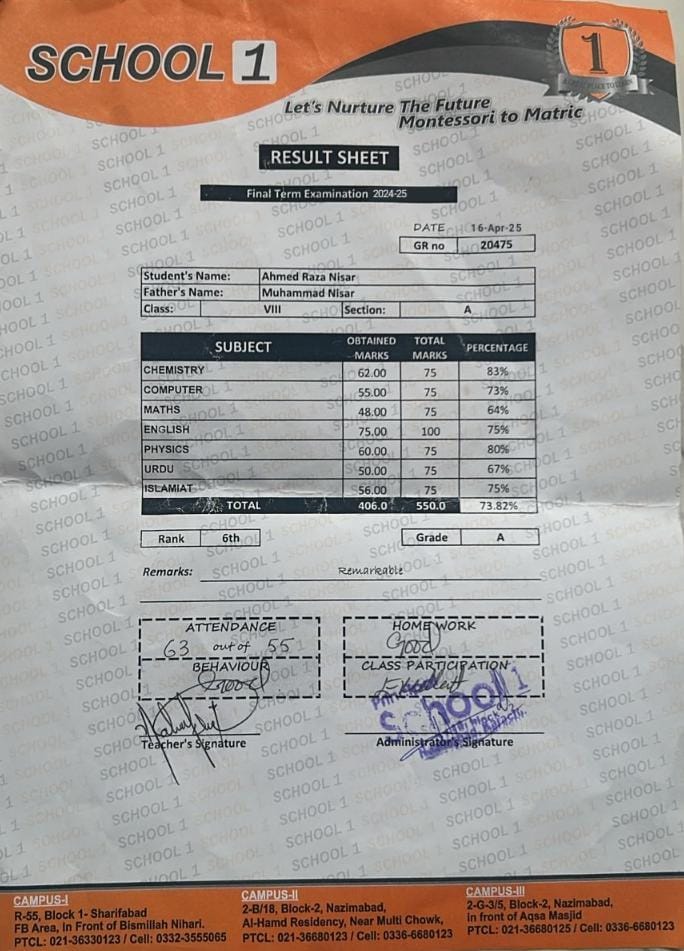 SCHOOL 1
1
A GREAT PLACE TO LEARN
Let's Nurture The Future
Montessori to Matric
RESULT SHEET
Final Term Examination 2024-25
DATE 16-Apr-25
GR no 20475
Student's Name: Ahmed Raza Nisar
Father's Name: Muhammad Nisar
Class: VIII Section: A
SUBJECT OBTAINED MARKS TOTAL MARKS PERCENTAGE
CHEMISTRY 62.00 75 83%
COMPUTER 55.00 75 73%
MATHS 48.00 75 64%
ENGLISH 75.00 100 75%
PHYSICS 60.00 75 80%
URDU 50.00 75 67%
ISLAMIAT 56.00 75 75%
TOTAL 406.0 550.0 73.82%
Rank 6th Grade A
Remarks: Remarkable
ATTENDANCE HOME WORK
63 out of 55 Good
BEHAVIOUR CLASS PARTICIPATION
Good Excellent
School 1
Karachi.
Teacher's Signature Administrator's Signature
CAMPUS-I
R-55, Block 1- Sharifabad
FB Area, In Front of Bismillah Nihari.
PTCL: 021-36330123 / Cell: 0332-3555065
CAMPUS-II
2-B/18, Block-2, Nazimabad,
Al-Hamd Residency, Near Multi Chowk,
PTCL: 021-36680123 / Cell: 0336-6680123
CAMPUS-III
2-G-3/5, Block-2, Nazimabad,
in front of Aqsa Masjid
PTCL: 021-36680125 / Cell: 0336-6680123